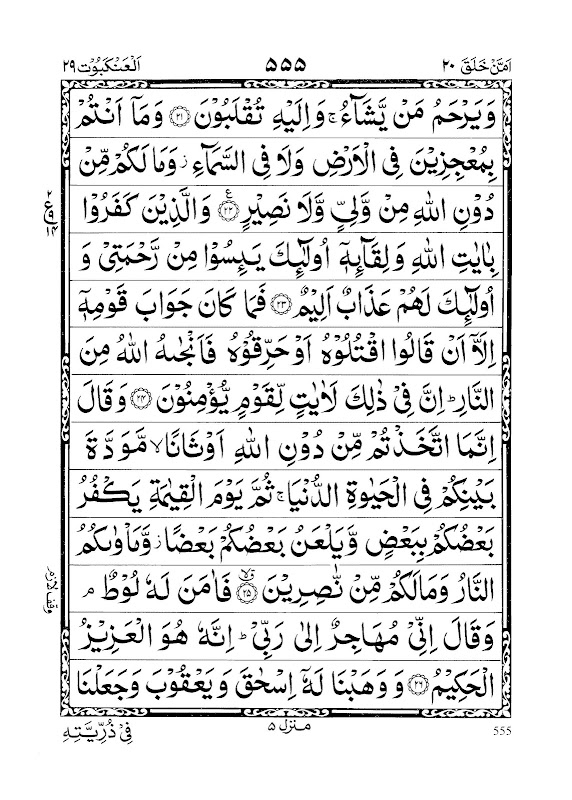 اَمَّنْ خَلَقَ ٢٠ ۵۵۵ اَلْعَنْكَبُوْت ٢٩
وَيَرْحَمُ مَنْ يَّشَآءُ ۚ وَاِلَيْهِ تُقْلَبُوْنَ ﴿٢١﴾ وَمَاۤ اَنْتُمْ
بِمُعْجِزِيْنَ فِى الْاَرْضِ وَلَا فِى السَّمَآءِ ز وَمَا لَكُمْ مِّنْ
دُوْنِ اللّٰهِ مِنْ وَّلِيٍّ وَّلَا نَصِيْرٍ ﴿٢٢﴾ ع وَالَّذِيْنَ كَفَرُوْا
٢ ع ١٤
بِاٰيٰتِ اللّٰهِ وَلِقَآئِهٖۤ اُولٰٓئِكَ يَئِسُوْا مِنْ رَّحْمَتِىْ وَ
اُولٰٓئِكَ لَهُمْ عَذَابٌ اَلِيْمٌ ﴿٢٣﴾ فَمَا كَانَ جَوَابَ قَوْمِهٖۤ
اِلَّاۤ اَنْ قَالُوا اقْتُلُوْهُ اَوْ حَرِّقُوْهُ فَاَنْجٰىهُ اللّٰهُ مِنَ
النَّارِ ؕ اِنَّ فِىْ ذٰلِكَ لَاٰيٰتٍ لِّقَوْمٍ يُّؤْمِنُوْنَ ﴿٢٤﴾ وَقَالَ
اِنَّمَا اتَّخَذْتُمْ مِّنْ دُوْنِ اللّٰهِ اَوْثَانًا ۙ مَّوَدَّةَ
بَيْنِكُمْ فِى الْحَيٰوةِ الدُّنْيَا ۚ ثُمَّ يَوْمَ الْقِيٰمَةِ يَكْفُرُ
بَعْضُكُمْ بِبَعْضٍ وَّيَلْعَنُ بَعْضُكُمْ بَعْضًا ز وَّمَاْوٰىكُمُ
النَّارُ وَمَا لَكُمْ مِّنْ نّٰصِرِيْنَ ﴿٢٥﴾ ۙ فَاٰمَنَ لَهٗ لُوْطٌ ۘ
وقف لازم
وَقَالَ اِنِّىْ مُهَاجِرٌ اِلٰى رَبِّىْ ؕ اِنَّهٗ هُوَ الْعَزِيْزُ
الْحَكِيْمُ ﴿٢٦﴾ وَوَهَبْنَا لَهٗۤ اِسْحٰقَ وَيَعْقُوْبَ وَجَعَلْنَا
555 منزل ۵ فِىْ ذُرِّيَّتِهِ